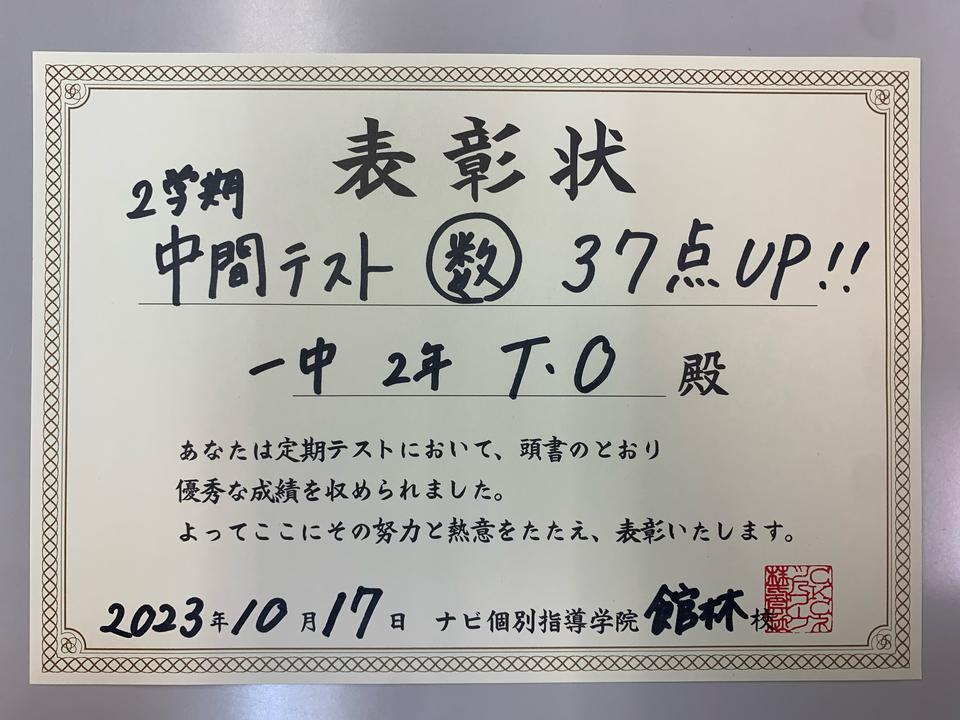 表彰状
2学期
中間テスト 数 37点UP!!
一中 2年 T.O 殿
あなたは定期テストにおいて、頭書のとおり
優秀な成績を収められました。
よってここにその努力と熱意をたたえ、表彰いたします。
2023年10月17日 ナビ個別指導学院 館林校